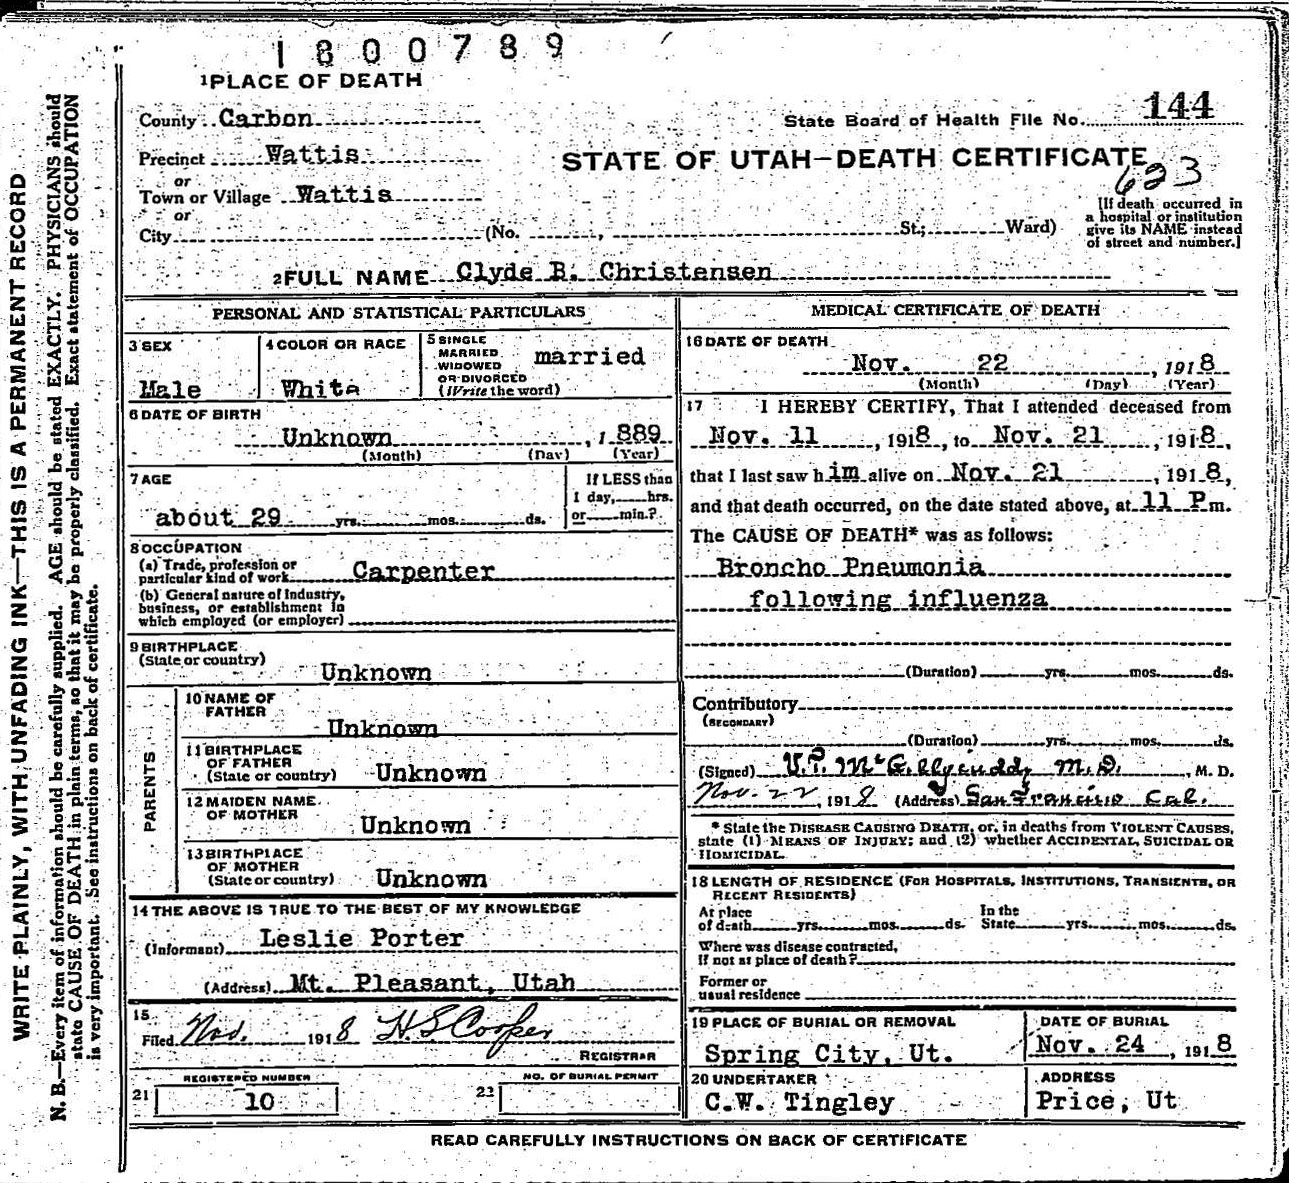 1800789
1 PLACE OF DEATH
County Carbon
State Board of Health File No. 144
Precinct Wattis
STATE OF UTAH—DEATH CERTIFICATE
or
623
Town or Village Wattis
or
City (No. , St.; Ward)
[If death occurred in
a hospital or institution
give its NAME instead
of street and number.]
2 FULL NAME Clyde B. Christensen
PERSONAL AND STATISTICAL PARTICULARS
3 SEX
Male
4 COLOR OR RACE
White
5 SINGLE
MARRIED
WIDOWED
OR DIVORCED
(Write the word)
married
6 DATE OF BIRTH
Unknown , 1889
(Month) (Day) (Year)
7 AGE
about 29 yrs. mos. ds.
If LESS than
1 day, hrs.
or min.?
8 OCCUPATION
(a) Trade, profession or
particular kind of work Carpenter
(b) General nature of Industry,
business, or establishment in
which employed (or employer)
9 BIRTHPLACE
(State or country)
Unknown
PARENTS
10 NAME OF
FATHER
Unknown
11 BIRTHPLACE
OF FATHER
(State or country) Unknown
12 MAIDEN NAME
OF MOTHER
Unknown
13 BIRTHPLACE
OF MOTHER
(State or country) Unknown
14 THE ABOVE IS TRUE TO THE BEST OF MY KNOWLEDGE
(Informant) Leslie Porter
(Address) Mt. Pleasant, Utah
15
Filed Nov. 1918 H. S. Cooper
REGISTRAR
REGISTERED NUMBER
21 10
NO. OF BURIAL PERMIT
22
MEDICAL CERTIFICATE OF DEATH
16 DATE OF DEATH
Nov. 22 , 1918
(Month) (Day) (Year)
17 I HEREBY CERTIFY, That I attended deceased from
Nov. 11 , 1918, to Nov. 21 , 1918,
that I last saw him alive on Nov. 21 , 1918,
and that death occurred, on the date stated above, at 11 P m.
The CAUSE OF DEATH* was as follows:
Broncho Pneumonia
following influenza
(Duration) yrs. mos. ds.
Contributory
(SECONDARY)
(Duration) yrs. mos. ds.
(Signed) M.D. , M. D.
Nov. 22 , 1918 (Address) San Francisco Cal.
* State the DISEASE CAUSING DEATH, or, in deaths from VIOLENT CAUSES,
state (1) MEANS OF INJURY; and (2) whether ACCIDENTAL, SUICIDAL OR
HOMICIDAL.
18 LENGTH OF RESIDENCE (FOR HOSPITALS, INSTITUTIONS, TRANSIENTS, OR
RECENT RESIDENTS)
At place
of death yrs. mos. ds.
In the
State yrs. mos. ds.
Where was disease contracted,
If not at place of death?
Former or
usual residence
19 PLACE OF BURIAL OR REMOVAL
Spring City, Ut.
DATE OF BURIAL
Nov. 24 , 1918
20 UNDERTAKER
C.W. Tingley
ADDRESS
Price, Ut
READ CAREFULLY INSTRUCTIONS ON BACK OF CERTIFICATE
WRITE PLAINLY, WITH UNFADING INK—THIS IS A PERMANENT RECORD
N. B.—Every item of information should be carefully supplied. AGE should be stated EXACTLY. PHYSICIANS should
state CAUSE OF DEATH in plain terms, so that it may be properly classified. Exact statement of OCCUPATION
is very important. See instructions on back of certificate.